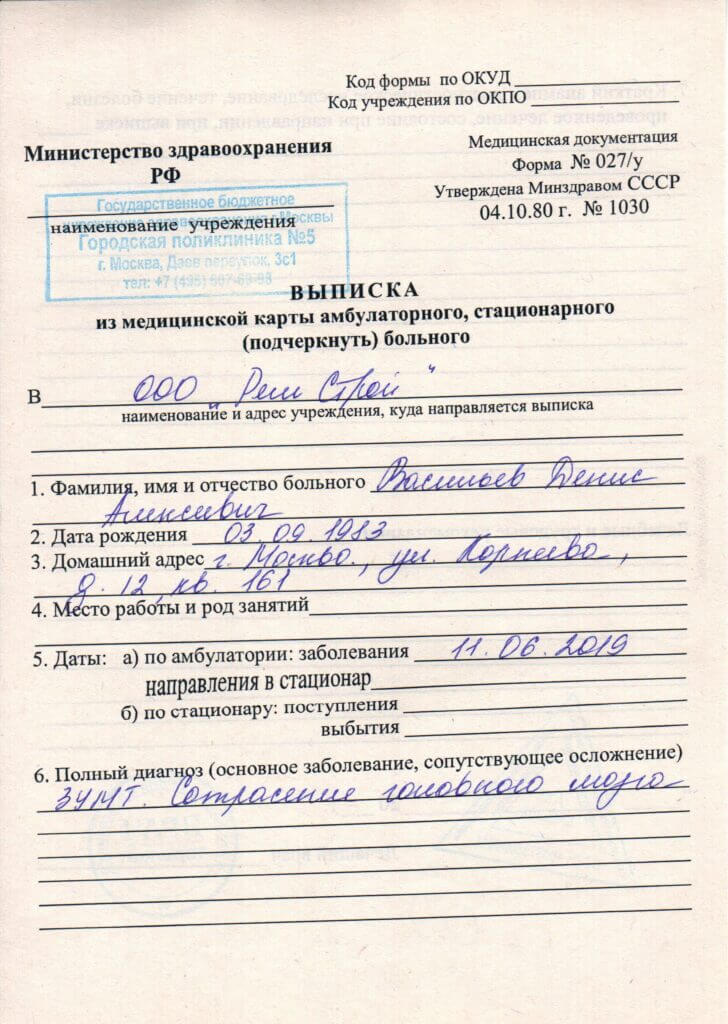 Код формы по ОКУД
Код учреждения по ОКПО
Министерство здравоохранения
РФ
Медицинская документация
Форма № 027/у
Утверждена Минздравом СССР
04.10.80 г. № 1030
Государственное бюджетное
учреждение здравоохранения г.Москвы
Городская поликлиника №5
г. Москва, Даев переулок, 3с1
тел: +7 (495)
наименование учреждения
ВЫПИСКА
из медицинской карты амбулаторного, стационарного
(подчеркнуть) больного
В ООО "Рем Строй"
наименование и адрес учреждения, куда направляется выписка
1. Фамилия, имя и отчество больного Васильев Денис
Алексеевич
2. Дата рождения 03.09.1983
3. Домашний адрес г. Москва., ул. Корнеева,
д. 12, кв. 161
4. Место работы и род занятий
5. Даты: а) по амбулатории: заболевания 11.06.2019
направления в стационар
б) по стационару: поступления
выбытия
6. Полный диагноз (основное заболевание, сопутствующее осложнение)
ЗЧМТ. Сотрясение головного мозга